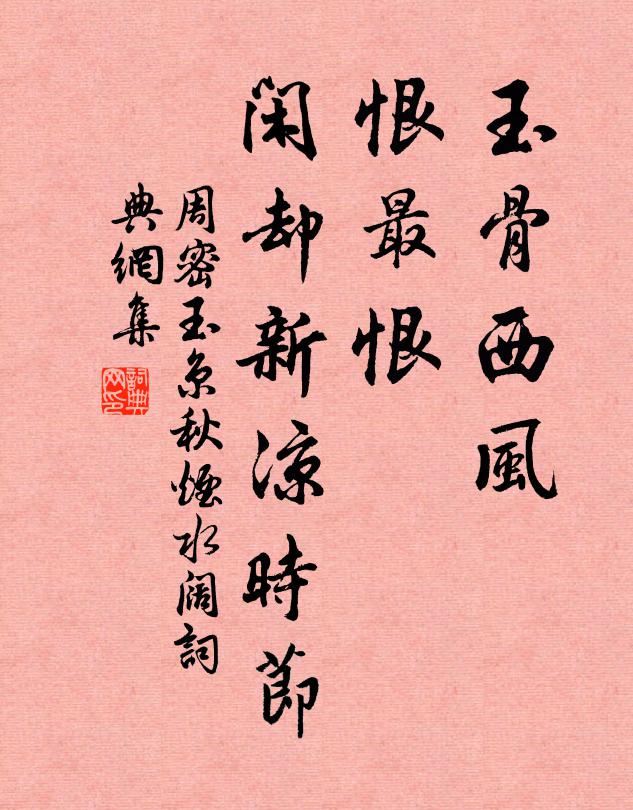 玉骨西風
恨最恨
閑却新涼時節
周密玉京秋煙水闊詞
典網集
詞典網印